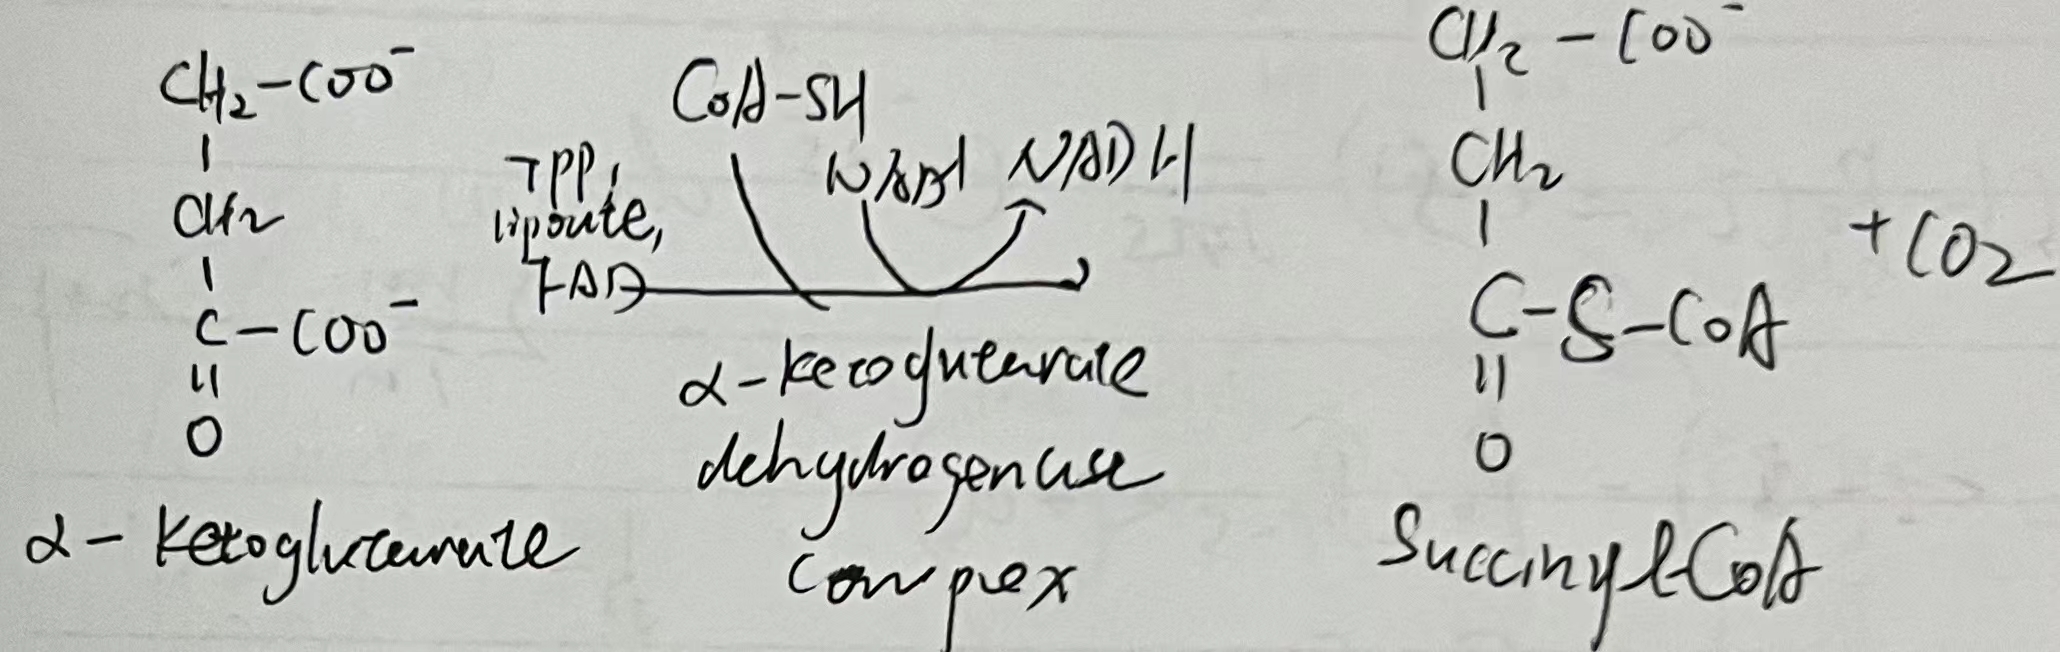 CH₂-COO⁻
|
CH₂
|
C-COO⁻
||
O
α-ketoglutarate
TPP,
lipoate,
FAD
CoA-SH
NAD⁺ NADH
α-ketoglutarate
dehydrogenase
complex
CH₂-COO⁻
|
CH₂
|
C-S-CoA
||
O
+CO₂
Succinyl-CoA